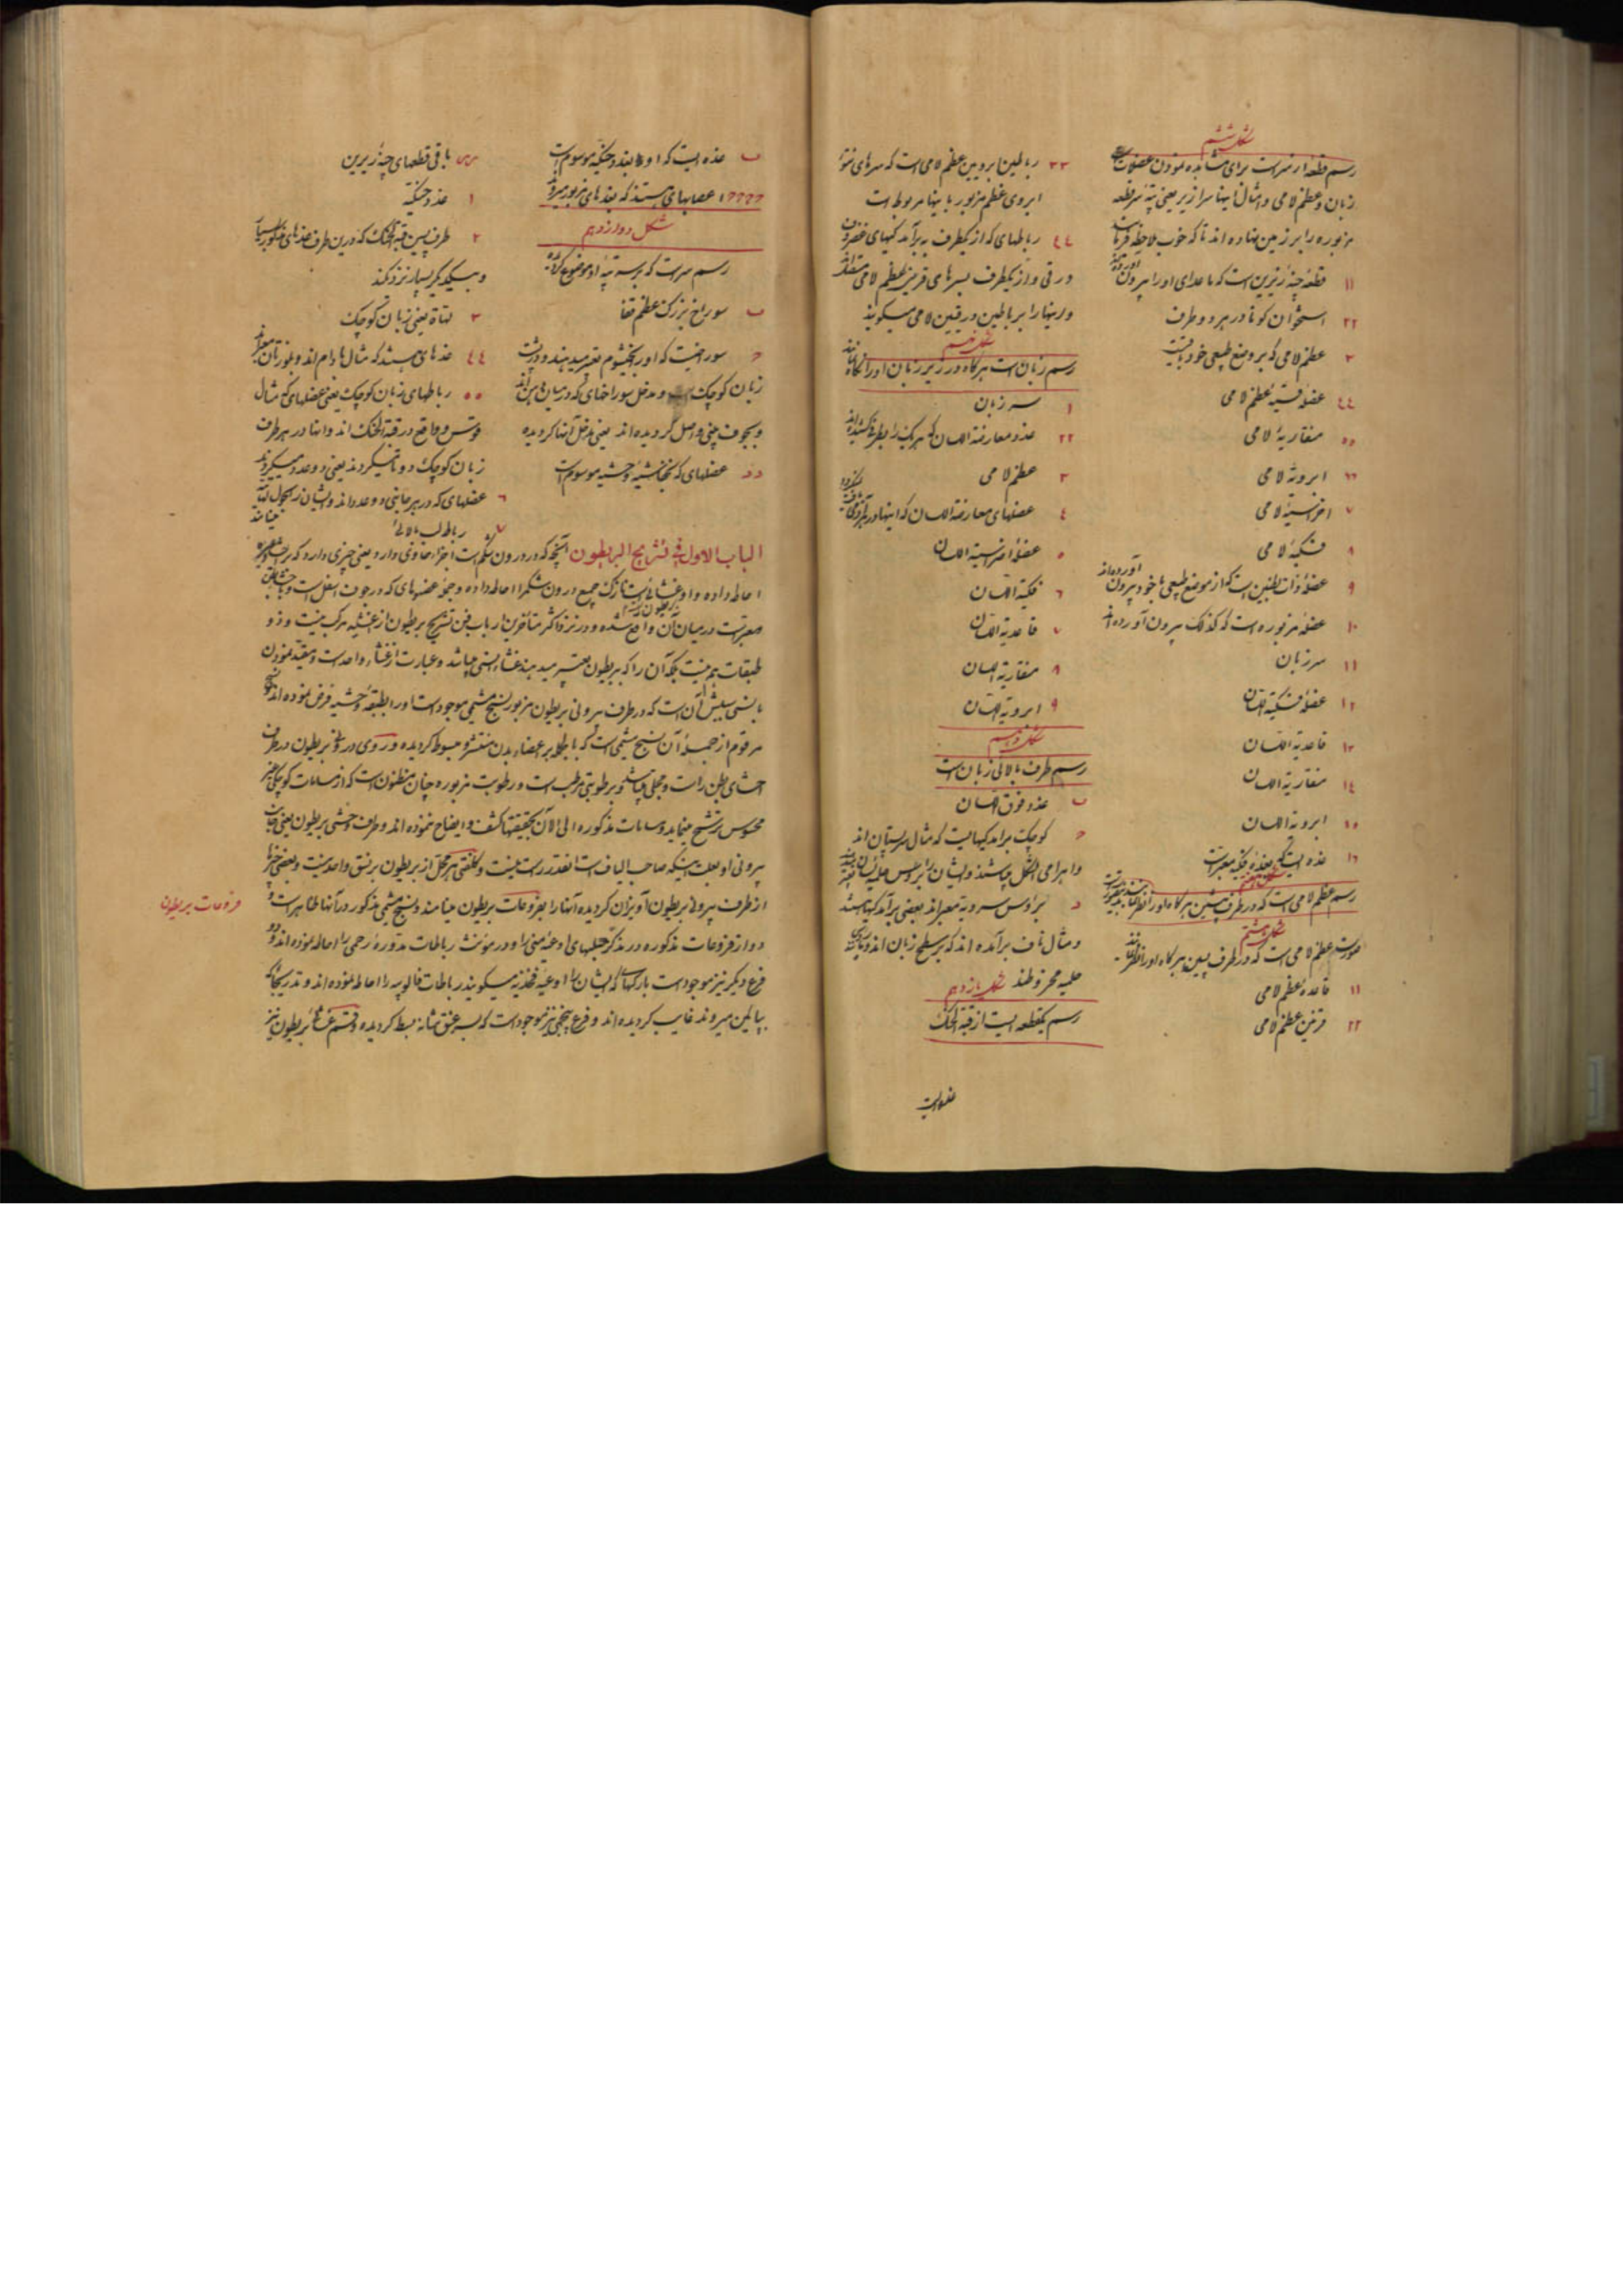 شکل ششم
رسم قطعه از سر است برای مشاهده نمودن عضلات
زبان و عظم لامی و امثال اینها سرازیر یعنی تپهٔ سر قطعه
مزبوره را بر زمین نهاده اند تا که خوب ملاحظه
۱۱ قطعهٔ چنهٔ زیرین است که ماعدای او را بیرون آورده اند
۲۲ استخوان کوتاه در هر دو طرف
۳ عظم لامی که بر وضع طبیعی خود باقیست
٤٤ عضلهٔ قسیهٔ عظم لامی
۵۵ منقاریهٔ لامی
٦٦ ابرویهٔ لامی
۷ اضراسیهٔ لامی
۸ فنکیهٔ لامی
۹ عضلهٔ ذات بطنین است که از موضع طبیعی خود بیرون آورده اند
۱۰ عضلهٔ مزبوره است که کذلک بیرون آورده اند
۱۱ سر زبان
۱۲ عضلهٔ فنکیة اللسان
۱۳ قاعدیة اللسان
۱٤ منقاریة اللسان
۱۵ ابرویة اللسان
۱٦ غده ایست که بغدهٔ چنکیه معبر است
شکل هفتم
رسم عظم لامی است که در طرف پیشین هرگاه او را نظر
شکل هشتم
صورت عظم لامی است که در طرف پسین هرگاه او را نظر
۱۱ قاعدهٔ عظم لامی
۲۲ قرنین عظم لامی
۳۳ رباطین ابرویین عظم لامی است که سرهای نتوّ
ابروی عظم مزبور با اینها مربوط است
٤٤ رباطهای که از یکطرف به برآمدگیهای غضروف
درقی و از یکطرف بسرهای قرنین عظم لامی
و اینها را برباطین درقیین لامی میگویند
شکل نهم
رسم زبان است هرگاه در زیر زبان او را نگاه
۱ سر زبان
۲۲ غدد معارضة اللسان که هر یک را بطرفی کشیده اند
۳ عظم لامی
٤ عضلهای معارضة اللسان که اینها در
۵ عضلهٔ اضراسیة اللسان
٦ فنکیة اللسان
۷ قاعدیة اللسان
۸ منقاریة اللسان
۹ ابرویة اللسان
شکل دهم
رسم طرف بالائی زبان است
ب غدد فوق اللسان
ج کوچک برآمدگیهایست که مثال سر پستان اند
و اهرامی الشکل میباشند و ایشان را برؤس حلمیه
د برؤس مسرویه معبر اند یعنی برآمدگیها هستند
و مثال ناف برآمده اند که بر سطح زبان اند
حلمیه مخروطند شکل یازدهم
رسم یکقطعه ایست از قبة الحنک
غده ایست
ب غده ایست که او را بغدد حنکیه موسوم است
۱۶۶۶۶ عصبهای هستند که بغدهای مزبور میروند
شکل دوازدهم
رسم سر است که بر سر تپهٔ او موضوع
ب سوراخ بزرگ عظم قفا
ج سوراخیست که او را بخیشوم تعبیر میدهند و در پشت
زبان کوچک است و مدخل سوراخهای که در میان
و بجوف بینی واصل گردیده اند یعنی مدخل آنها گردیده
دد عضلهای که بخناقیه وحشیه موسوم است
س س باقی قطعهای چنهٔ زیرین
۱ غدد حنکیة
۲ طرف پسین قبة الحنک که در این طرف غدهای مذکور بسیار
و بیکدیگر بسیار نزدیکند
۳ لهاة یعنی زبان کوچک
٤٤ غدهای هستند که مثال بادام اند و بلوزتان معبر اند
۵۵ رباطهای زبان کوچک یعنی عضلهای که مثال
قوس و واقع در قبة الحنک اند و اینها در هر طرف
زبان کوچک دو تا میگردند یعنی دو عدد میگردند
٦ عضلهای که در هر جانبی دو عدد اند و ایشان را
مینامند
۷ رباط لب بالائی
الباب الاول فی تشریح البریطون آنچه که در درون شکم است اجزاء حاوی دارد یعنی چیزی دارد که
احاطه داده و او غشائیست نازک جمیع درون شکم را احاطه داده و جمله عضوهای که در جوف اسفل است
معبر است در میان آن واقع شده و در نزد اکثر متأخرین ارباب فن تشریح بریطون از اغشیه مرکب نیست و ذو
طبقات هم نیست بلکه آن را که بریطون تعبیر میدهند غشاء نسجی میباشد و عبارت از غشاء واحد است و مقید نمودن
بانسجی سببش آن است که در طرف بیرونی بریطون مزبور نسیج مشیمی موجود است او را بطبقهٔ وحشیه فرض نموده اند
مرقوم از جملهٔ آن نسیج مشیمی است که بالجمله بر اعضاء بدن منتشر و مبسوط گردیده و روی درونی بریطون در طرف
احشای بطن راست و مجلی میباشد و برطوبتی مرطب است و رطوبت مزبوره چنان مظنون است که از مسامات کوچک غیر
محسوس ترشح مینماید و مسامات مذکوره الی الآن بحقیقتها کشف و ایضاح ننموده اند و طرف وحشی بریطون یعنی جانب
بیرونی او بعلت اینکه صاحب الیاف است انقدر راست نیست و کلفتی هر محل از بریطون بر نسق واحد نیست و بعضی چیزها
از طرف بیرونی بریطون آویزان گردیده آنها را بفروعات بریطون مینامند و نسیج مشیمی مذکور در آنها ظاهر است و
دو از فروعات مذکوره در مذکر حبلهای اوعیهٔ منی را و در مؤنث رباطات مدورهٔ رحمی را احاطه نموده اند و دو
فرع دیگر نیز موجود است با رگهای که ایشان را اوعیهٔ فخذیه میگویند رباطات فالوپیه را احاطه نموده اند و تدریجا که
بپائین میروند غایب گردیده اند و فرع پنجمی نیز موجود است که بسر عنق مثانه بسط گردیده و قسم غشائی بریطون نیز
فروعات بریطون